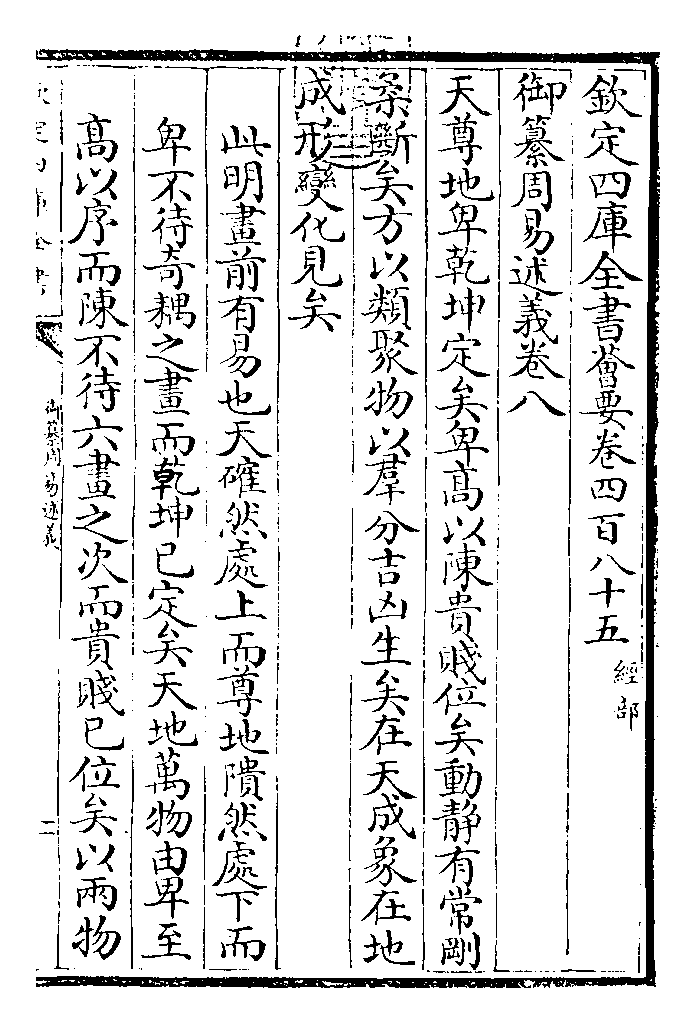 欽定四庫全書薈要卷四百八十五 經部
御纂周易述義卷八
天尊地卑乾坤定矣卑髙以陳貴賤位矣動靜有常剛
柔斷矣方以類聚物以羣分吉凶生矣在天成象在地
成形變化見矣
此明畫前有易也天確然處上而尊地隤然處下而
卑不待奇耦之畫而乾坤已定矣天地萬物由卑至
髙以序而陳不待六畫之次而貴賤已位矣以兩物
欽定四庫全書
御纂周易述義